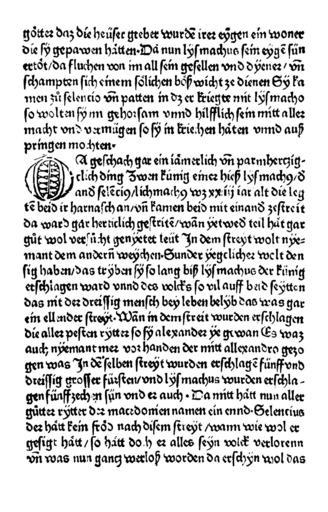 götter daz die heüser greber wurdē irer eygen ein woner
die sy gepawen hätten. Da nun lysmachus sein eygē sün
ertöt/ da fluchen von im all sein gesellen vnd dyener/ vn̄
schampten sich einem sölichen böß wicht ze dienen Sy ka
men zů selencio vn̄ patten in dz er kriegte mit lysmacho
so wolten sy im gehorsam vnnd hilfflich sein mitt aller
macht vnd vermügen so sy in kriechen häten vnnd auß
pringen mochten.
DA geschach gar ein iämerlich vn̄ parmhertzig-
clich ding Zwen künig einer hieß lysmach9/ d
and selēcio/ lichmacho wz xxiiij iar alt die leg
ten beid ir harnasch an/ vn̄ kamen beid mit einand ze streit
da ward gar herttlich gestriten/ wān yetwed teil hāt gar
gůt wol versůcht genyetet leüt In dem streyt wolt nye-
mant dem andern weychen. Sunder yegklicher wolt den
sig haben/ das tryben sy so lang biß lysmachus der künig
erschlagen ward vnnd des volcks so vil auff baid seytten
das nit der dreissig mensch bey leben belyb das was gar
ein ellender streyt. Wān in dem streit wurdē erschlagen
die aller pesten rytter so sy alexander ye gewan Es waz
auch nyemant mer vorhanden der mitt allexandro gezo
gen was In dē selben streyt wurden erschlagē fünff vnd
dreissig grosser fürsten/ vnd lysmachus wurden erschla-
gen fünffzechen sün vnd er auch. Da mitt hätt nun aller
gůtter rytter der macedonien namen ein ennd. Selentius
der hätt kein fröd nach disem streyt/ wann wie wol er
gesigt hätt/ so hätt doch er alles seyn volck verlorenn
vn̄ was nun gantz verloß worden da erschyn wol das